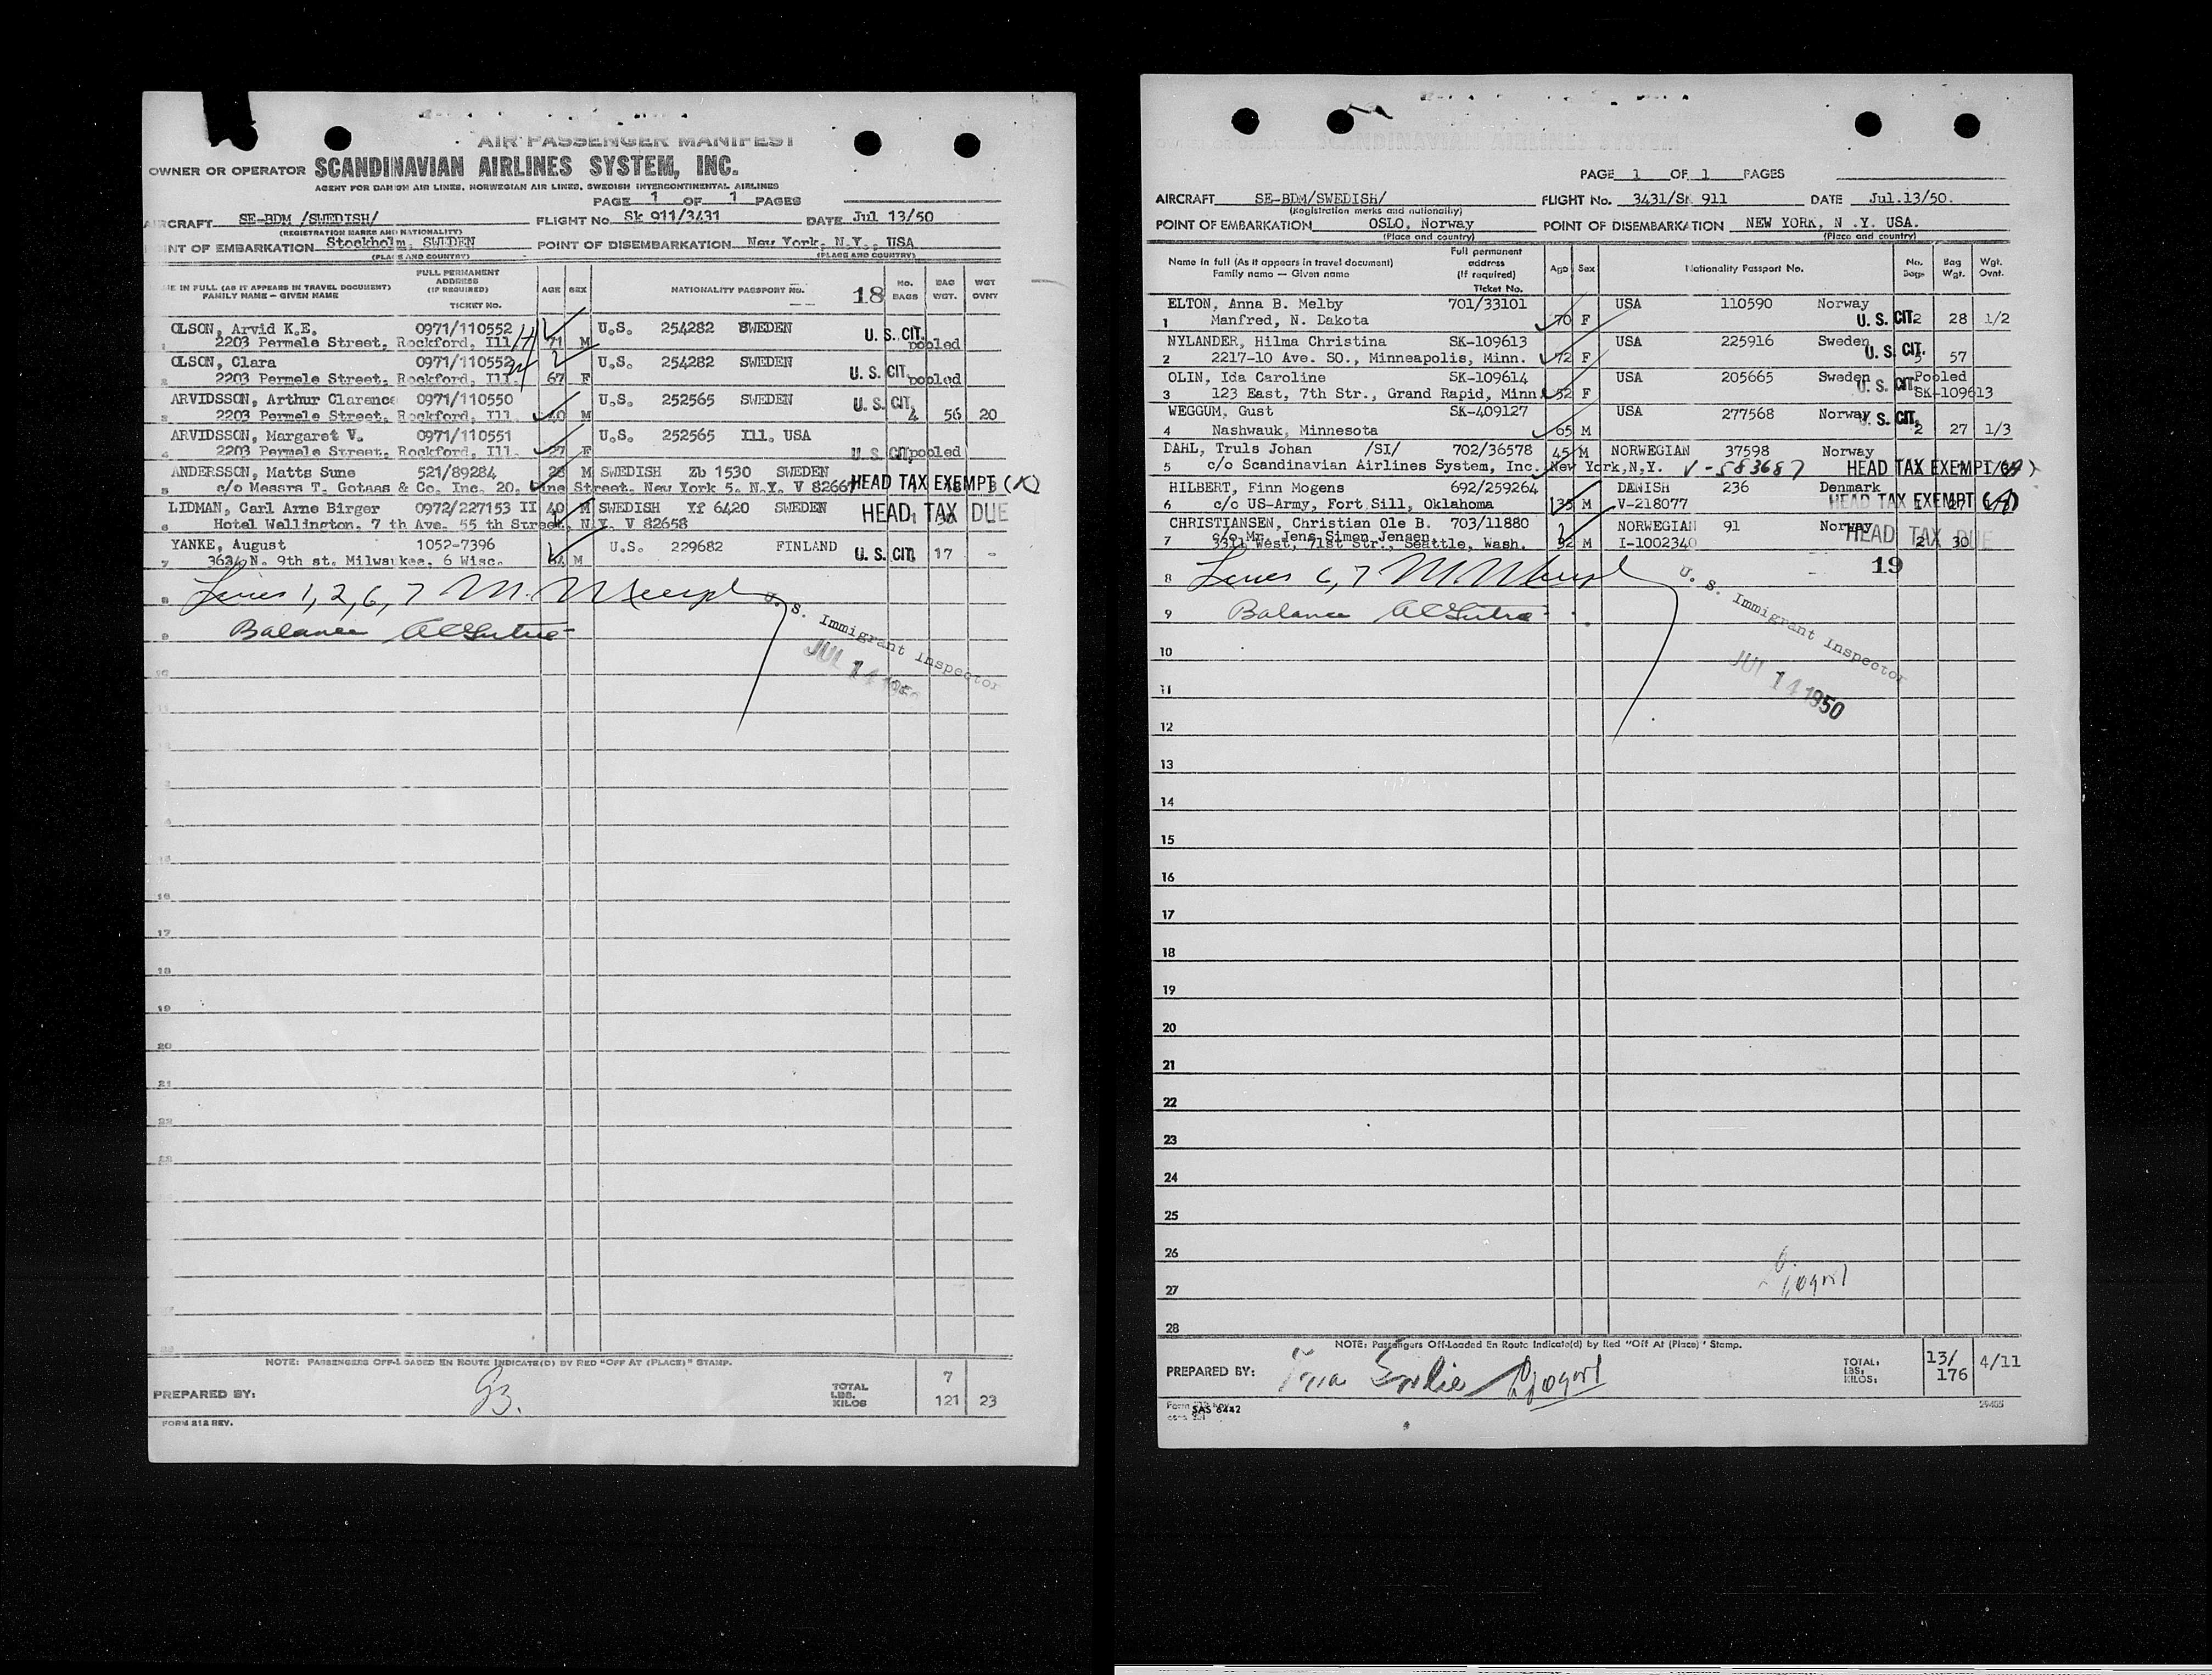 AIR PASSENGER MANIFEST
OWNER OR OPERATOR SCANDINAVIAN AIRLINES SYSTEM, INC.
AGENT FOR DANISH AIR LINES, NORWEGIAN AIR LINES, SWEDISH INTERCONTINENTAL AIRLINES
PAGE 1 OF 1 PAGES
AIRCRAFT SE-BDM /SWEDISH/ FLIGHT No. Sk 911/3431 DATE Jul 13/50
(REGISTRATION MARKS AND NATIONALITY)
INT OF EMBARKATION Stockholm, SWEDEN POINT OF DISEMBARKATION New York, N.Y., USA
(PLACE AND COUNTRY) (PLACE AND COUNTRY)
ME IN FULL (AS IT APPEARS IN TRAVEL DOCUMENT) FAMILY NAME — GIVEN NAME FULL PERMANENT ADDRESS (IF REQUIRED) TICKET No. AGE SEX NATIONALITY PASSPORT No. 18 No. BAGS BAG WGT. WGT OVNT
OLSON, Arvid K.E. 0971/110552 U.S. 254282 SWEDEN U. S. CIT.
1 2203 Permele Street, Rockford, Ill. 71 M pooled
OLSON, Clara 0971/110552 U.S. 254282 SWEDEN
2 2203 Permele Street, Rockford, Ill. 67 F U. S. CIT. pooled
ARVIDSSON, Arthur Clarence 0971/110550 U.S. 252565 SWEDEN U. S. CIT.
3 2203 Permele Street, Rockford, Ill. 40 M 4 56 20
ARVIDSSON, Margaret V. 0971/110551 U.S. 252565 Ill. USA
4 2203 Permele Street, Rockford, Ill. 27 F U. S. CIT. pooled
ANDERSSON, Matts Sune 521/89284 28 M SWEDISH Zb 1530 SWEDEN
5 c/o Messrs T. Gotaas & Co. Inc. 20. Street. New York 5. N.Y. V 82667 HEAD TAX EXEMPT
LIDMAN, Carl Arne Birger 0972/227153 II 40 M SWEDISH Yf 6420 SWEDEN HEAD TAX DUE
6 Hotel Wellington, 7 th Ave. 55 th Street, N.Y. V 82658
YANKE, August 1052-7396 U.S. 229682 FINLAND U. S. CIT. 17 -
7 3634 N. 9th st. Milwaukee, 6 Wisc. M
8 Lines 1, 2, 6, 7
9 Balance
U. S. Immigrant Inspector
JUL 14 1950
10
17
18
19
20
21
22
23
NOTE: PASSENGERS OFF-LOADED EN ROUTE INDICATE(D) BY RED "OFF AT (PLACE)" STAMP.
PREPARED BY: TOTAL LBS. KILOS 7 121 23
FORM 812 REV.
PAGE 1 OF 1 PAGES
AIRCRAFT SE-BDM/SWEDISH/ FLIGHT No. 3431/SK 911 DATE Jul.13/50.
(Registration marks and nationality)
POINT OF EMBARKATION OSLO, Norway POINT OF DISEMBARKATION NEW YORK, N .Y. USA.
(Place and country) (Place and country)
Name in full (As it appears in travel document) Family name — Given name Full permanent address (If required) Ticket No. Age Sex Nationality Passport No. No. Bags Bag Wgt. Wgt. Ovnt.
ELTON, Anna B. Melby 701/33101 USA 110590 Norway
1 Manfred, N. Dakota 70 F U. S. CIT. 2 28 1/2
NYLANDER, Hilma Christina SK-109613 USA 225916 Sweden
2 2217-10 Ave. SO., Minneapolis, Minn. 72 F U. S. CIT. 57
OLIN, Ida Caroline SK-109614 USA 205665 Sweden Pooled
3 123 East, 7th Str., Grand Rapid, Minn. 52 F U. S. CIT. SK-109613
WEGGUM, Gust SK-409127 USA 277568 Norway U. S. CIT.
4 Nashwauk, Minnesota 65 M 2 27 1/3
DAHL, Truls Johan /SI/ 702/36578 45 M NORWEGIAN 37598 Norway
5 c/o Scandinavian Airlines System, Inc. New York,N.Y. V-583687 HEAD TAX EXEMPT
HILBERT, Finn Mogens 692/259264 DANISH 236 Denmark
6 c/o US-Army, Fort Sill, Oklahoma 35 M V-218077 HEAD TAX EXEMPT
CHRISTIANSEN, Christian Ole B. 703/11880 NORWEGIAN 91 Norway
c/o Mr. Jens Simon Jensen HEAD TAX DUE
7 3311 West, 71st Str., Seattle, Wash. 52 M I-1002340 2 30
19
8 Lines 6, 7
9 Balance
U. S. Immigrant Inspector
JUL 14 1950
10
11
12
13
14
15
16
17
18
19
20
21
22
23
24
25
26
27
28
NOTE: Passengers Off-Loaded En Route Indicate(d) by Red "Off At (Place)" Stamp.
PREPARED BY: TOTAL: LBS: KILOS: 13/ 176 4/11
SAS 6442